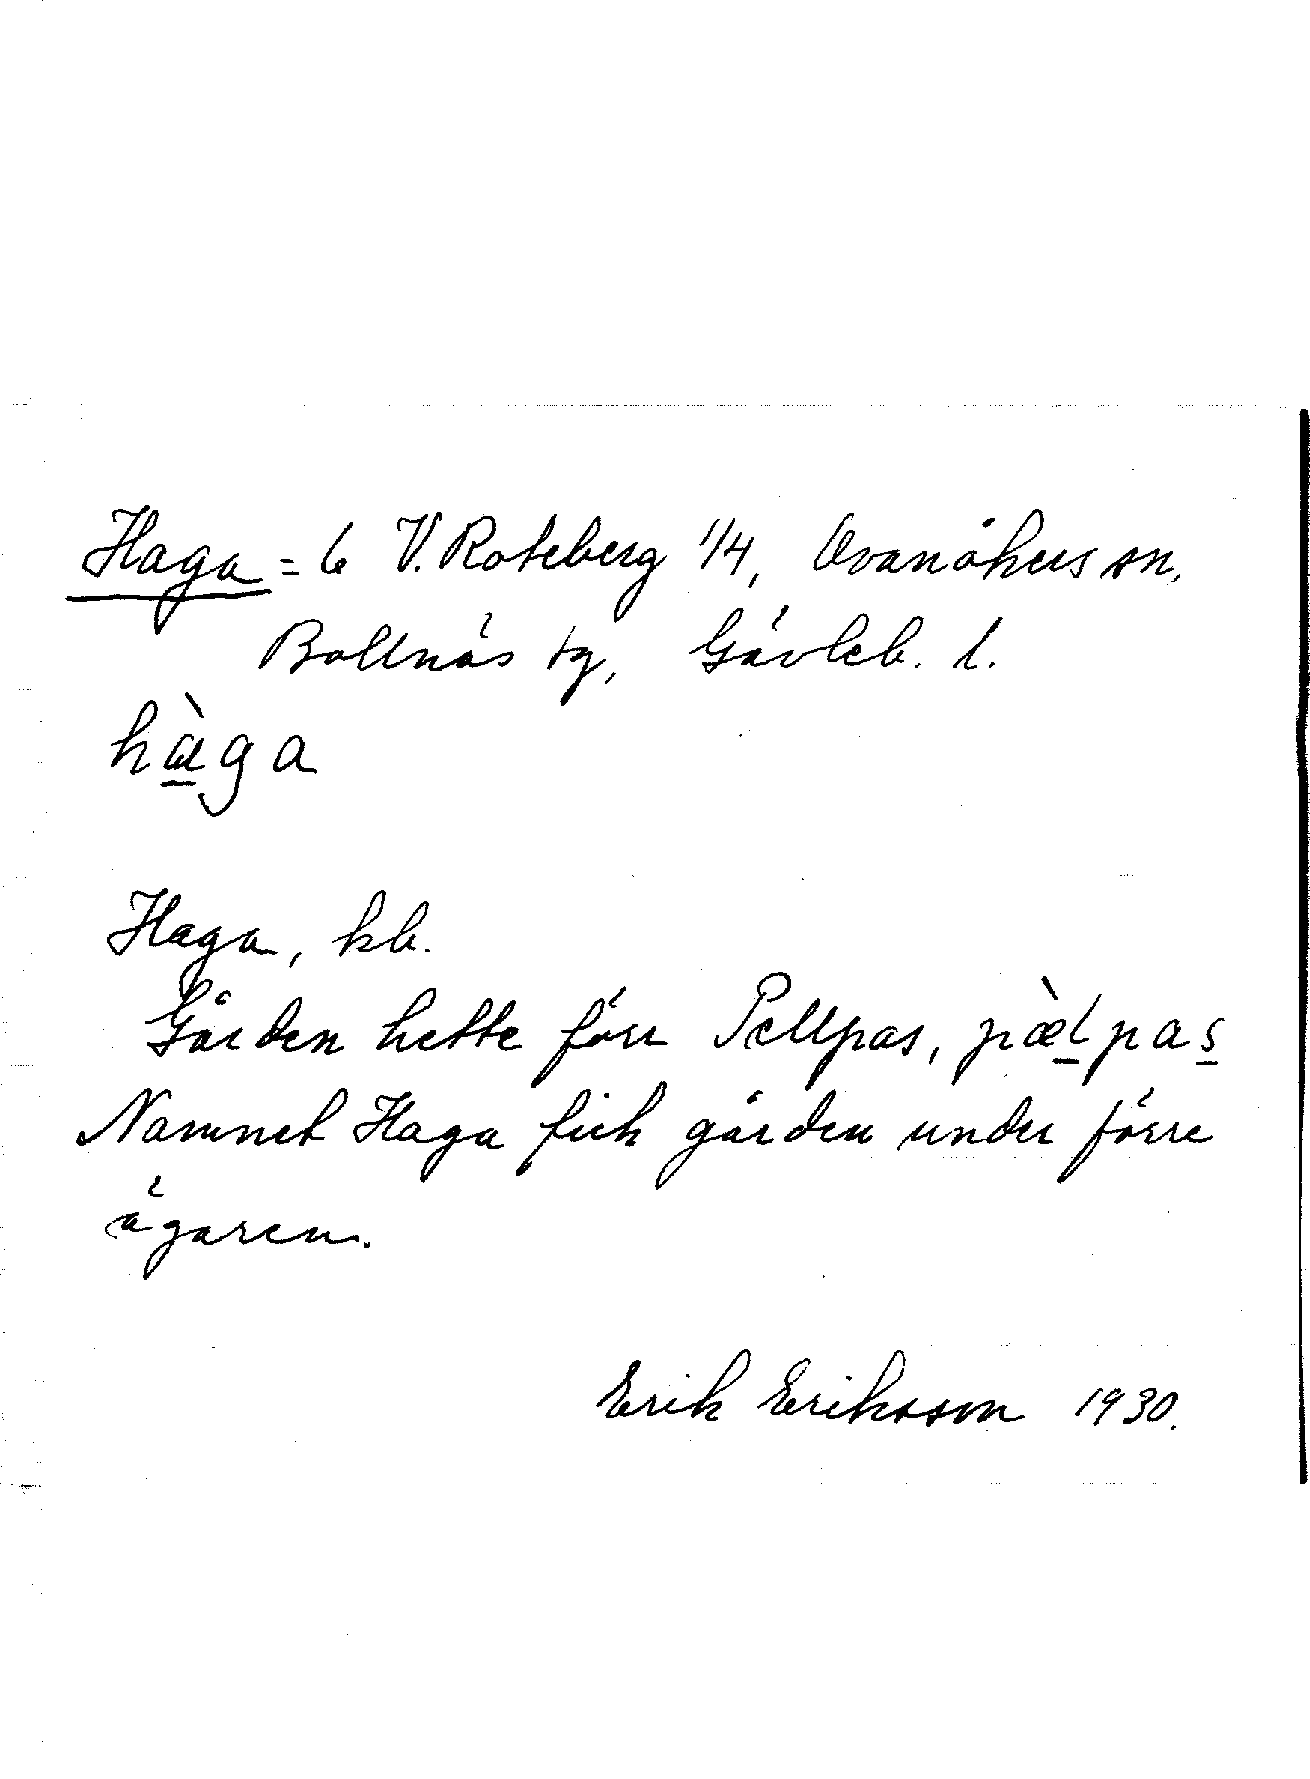 Haga = 6 V. Roteberg 1/4, Ovanåkers sn,
Bollnäs tg, Gävleb. l.
hà̱ga
Haga, kb.
Gården hette förr Pellpas, pæ̀l̲pas̲
Namnet Haga fick gården under förre
ägaren.
Erik Eriksson 1930.